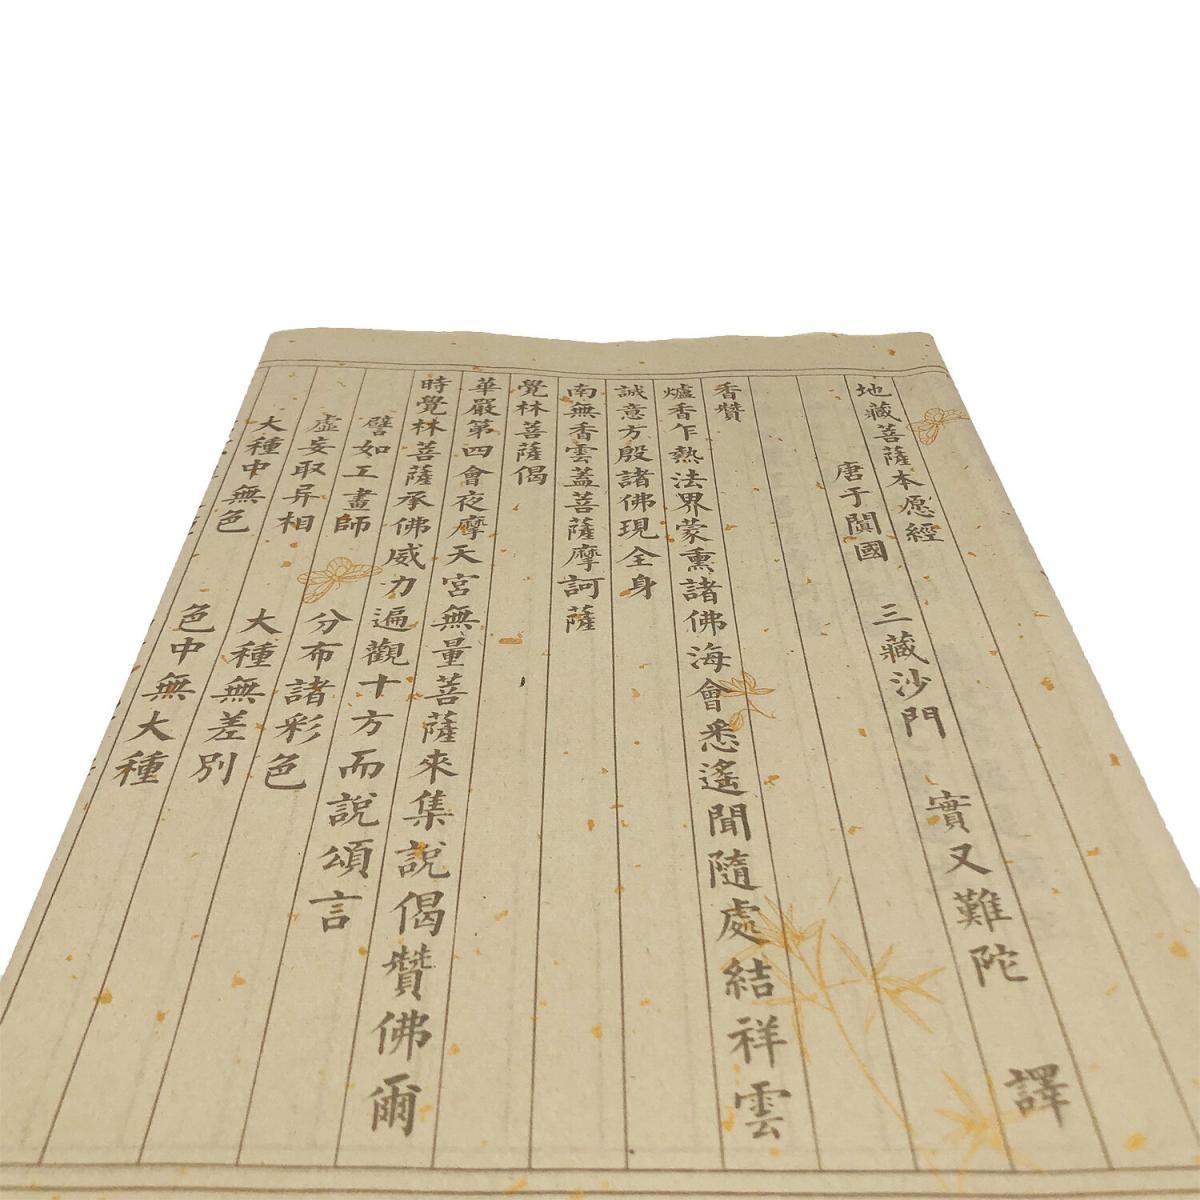 地藏菩薩本愿經
唐于闐國 三藏沙門 實又難陀 譯
香贊
爐香乍熱法界蒙熏諸佛海會悉遙聞隨處結祥雲
誠意方殷諸佛現全身
南無香雲蓋菩薩摩訶薩
覺林菩薩偈
華嚴第四會夜摩天宮無量菩薩來集說偈贊佛爾
時覺林菩薩承佛威力遍觀十方而說頌言
譬如工畫師 分布諸彩色
虛妄取异相 大種無差別
大種中無色 色中無大種